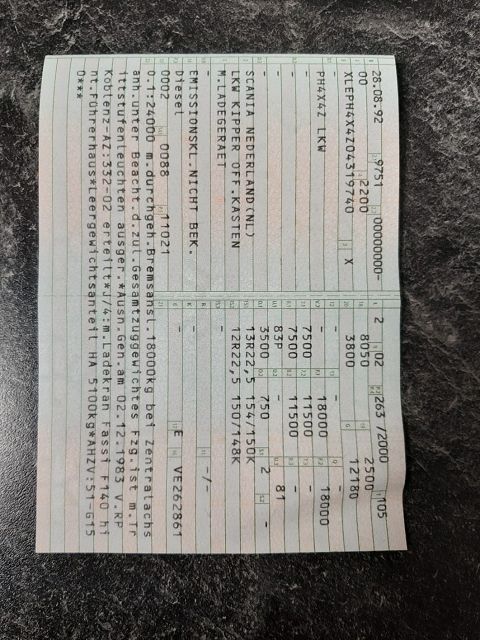 28.08.92 9751 00000000-
00 2200
XLEPH4X4Z04319740 X
-
-
PH4X4Z LKW
-
-
-
SCANIA NEDERLAND(NL)
LKW KIPPER OFF.KASTEN
M.LADEGERAET
-
EMISSIONSKL.NICHT BEK.
Diesel
0002 0088 11021
2 02 263 /2000 105
8050 2500
3800 12180
- - -
- 18000 18000
7500 11500 -
7500 11500 -
83P - 81
3500 750 2 -
13R22,5 154/150K
12R22,5 150/148K
- -/-
- E VE262861
O.1:24000 m.durchgeh.Bremsanl.18000kg bei Zentralachs
anh.unter Beacht.d.zul.Gesamtzuggewichtes Fzg.ist m.Tr
ittstufenleuchten ausger.*Ausn.Gen.am 02.12.1983 v.RP
Koblenz-AZ:332-02 erteilt*J/4:m.Ladekran Fassi F140 hi
nt.Führerhaus*Leergewichtsanteil HA 5100kg*AHZV:51-G15
0***